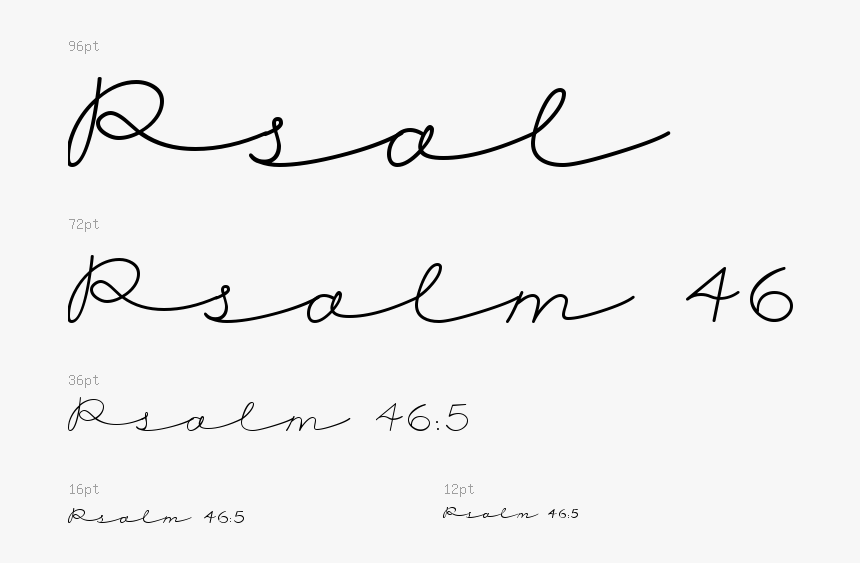 96pt
Psal
72pt
Psalm 46
36pt
Psalm 46:5
16pt
Psalm 46:5
12pt
Psalm 46:5